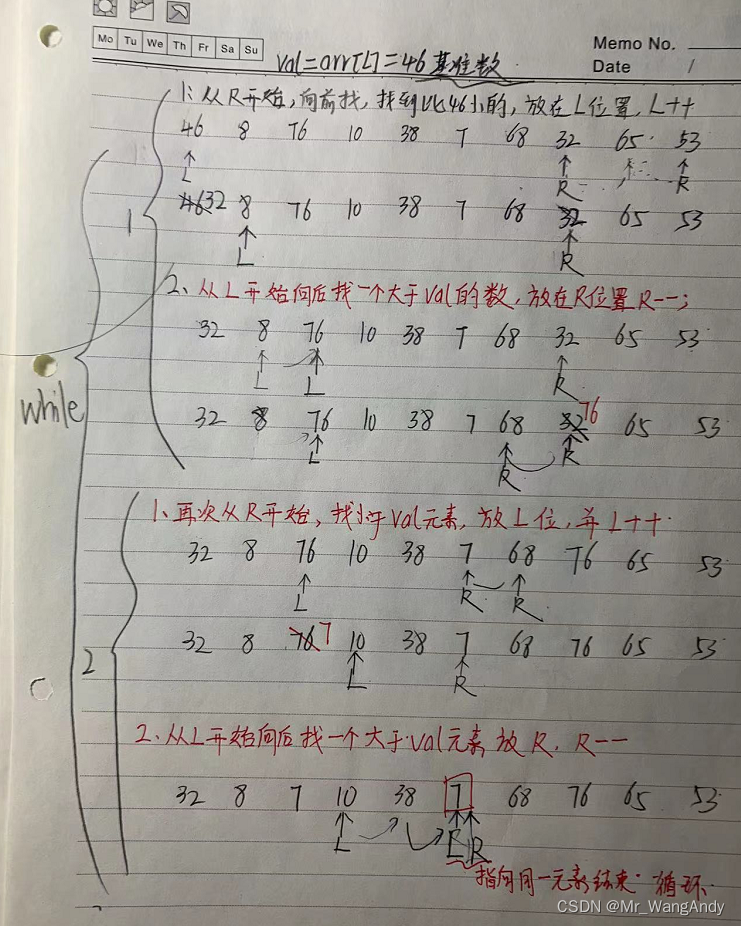 Mo Tu We Th Fr Sa Su
Memo No.
Date /
val=arr[L]=46基准数
1:从R开始,向前找,找到比46小的,放在L位置,L++
46 8 76 10 38 7 68 32 65 53
L R R
46 32 8 76 10 38 7 68 32 65 53
L R
1
2、从L开始向后找一个大于val的数,放在R位置R--;
32 8 76 10 38 7 68 32 65 53
L L R
while
32 8 76 10 38 7 68 32 76 65 53
L R R
1、再次从R开始,找小于val元素,放L位,并L++
32 8 76 10 38 7 68 76 65 53
L R R
32 8 76 7 10 38 7 68 76 65 53
L R
2
2、从L开始向后找一个大于val元素放R,R--
32 8 7 10 38 7 68 76 65 53
L L R
指向同一元素结束 循环
CSDN @Mr_WangAndy